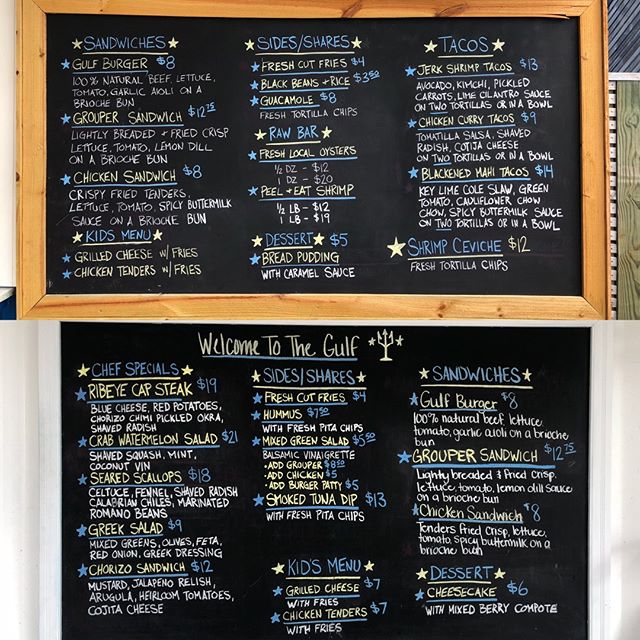 SANDWICHES
GULF BURGER $8
100% NATURAL BEEF, LETTUCE,
TOMATO, GARLIC AIOLI ON A
BRIOCHE BUN
GROUPER SANDWICH $12.75
LIGHTLY BREADED + FRIED CRISP
LETTUCE, TOMATO, LEMON DILL
ON A BRIOCHE BUN
CHICKEN SANDWICH $8
CRISPY FRIED TENDERS,
LETTUCE, TOMATO, SPICY BUTTERMILK
SAUCE ON A BRIOCHE BUN
KIDS MENU
GRILLED CHEESE W/ FRIES
CHICKEN TENDERS W/ FRIES
SIDES/SHARES
FRESH CUT FRIES $4
BLACK BEANS + RICE $3.50
GUACAMOLE $8
FRESH TORTILLA CHIPS
RAW BAR
FRESH LOCAL OYSTERS
1/2 DZ - $12
1 DZ - $20
PEEL + EAT SHRIMP
1/2 LB - $12
1 LB - $19
DESSERT $5
BREAD PUDDING
WITH CARAMEL SAUCE
TACOS
JERK SHRIMP TACOS $13
AVOCADO, KIMCHI, PICKLED
CARROTS, LIME CILANTRO SAUCE
ON TWO TORTILLAS OR IN A BOWL
CHICKEN CURRY TACOS $9
TOMATILLA SALSA, SHAVED
RADISH, COTIJA CHEESE
ON TWO TORTILLAS OR IN A BOWL
BLACKENED MAHI TACOS $14
KEY LIME COLE SLAW, GREEN
TOMATO, CAULIFLOWER CHOW
CHOW, SPICY BUTTERMILK SAUCE
ON TWO TORTILLAS OR IN A BOWL
SHRIMP CEVICHE $12
FRESH TORTILLA CHIPS
Welcome To The Gulf
CHEF SPECIALS
RIBEYE CAP STEAK $19
BLUE CHEESE, RED POTATOES,
CHORIZO CHIMI PICKLED OKRA,
SHAVED RADISH
CRAB WATERMELON SALAD $21
SHAVED SQUASH, MINT,
COCONUT VIN
SEARED SCALLOPS $18
CELTUCE, FENNEL, SHAVED RADISH
CALABRIAN CHILES, MARINATED
ROMANO BEANS
GREEK SALAD $9
MIXED GREENS, OLIVES, FETA,
RED ONION, GREEK DRESSING
CHORIZO SANDWICH $12
MUSTARD, JALAPENO RELISH,
ARUGULA, HEIRLOOM TOMATOES,
COJITA CHEESE
SIDES/SHARES
FRESH CUT FRIES $4
HUMMUS $7.50
WITH FRESH PITA CHIPS
MIXED GREEN SALAD $5.50
BALSAMIC VINAIGRETTE
• ADD GROUPER $8.50
• ADD CHICKEN $5
• ADD BURGER PATTY $5
SMOKED TUNA DIP $13
WITH FRESH PITA CHIPS
KID'S MENU
GRILLED CHEESE $7
WITH FRIES
CHICKEN TENDERS $7
WITH FRIES
SANDWICHES
Gulf Burger $8
100% natural beef lettuce
tomato, garlic aioli on a brioche
bun
GROUPER SANDWICH $12.75
Lightly breaded & fried crisp.
lettuce, tomato, lemon dill sauce
on a brioche bun
Chicken Sandwich $8
Tenders fried crisp, lettuce,
tomato, spicy buttermilk on a
brioche bun
DESSERT
CHEESECAKE $6
WITH MIXED BERRY COMPOTE